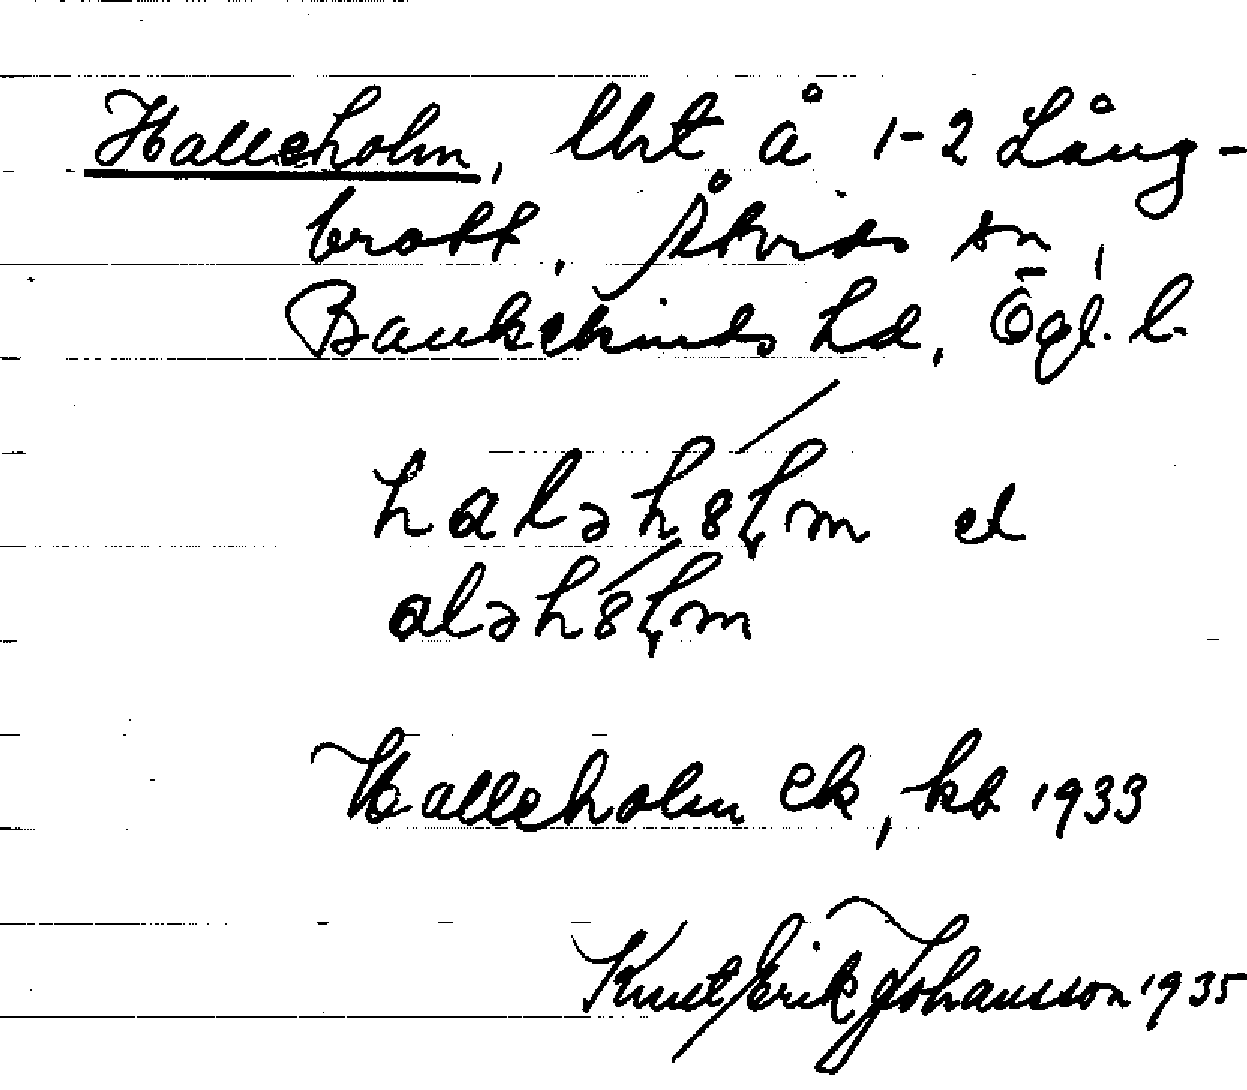 Halleholm, lht å 1-2 Lång-
brott, Åtvids sn,
Bankekinds hd, Ögl. l.
haləh8ḷm el
aləh8ḷm
Halleholm ek, kb 1933
Knut Erik Johansson 1935